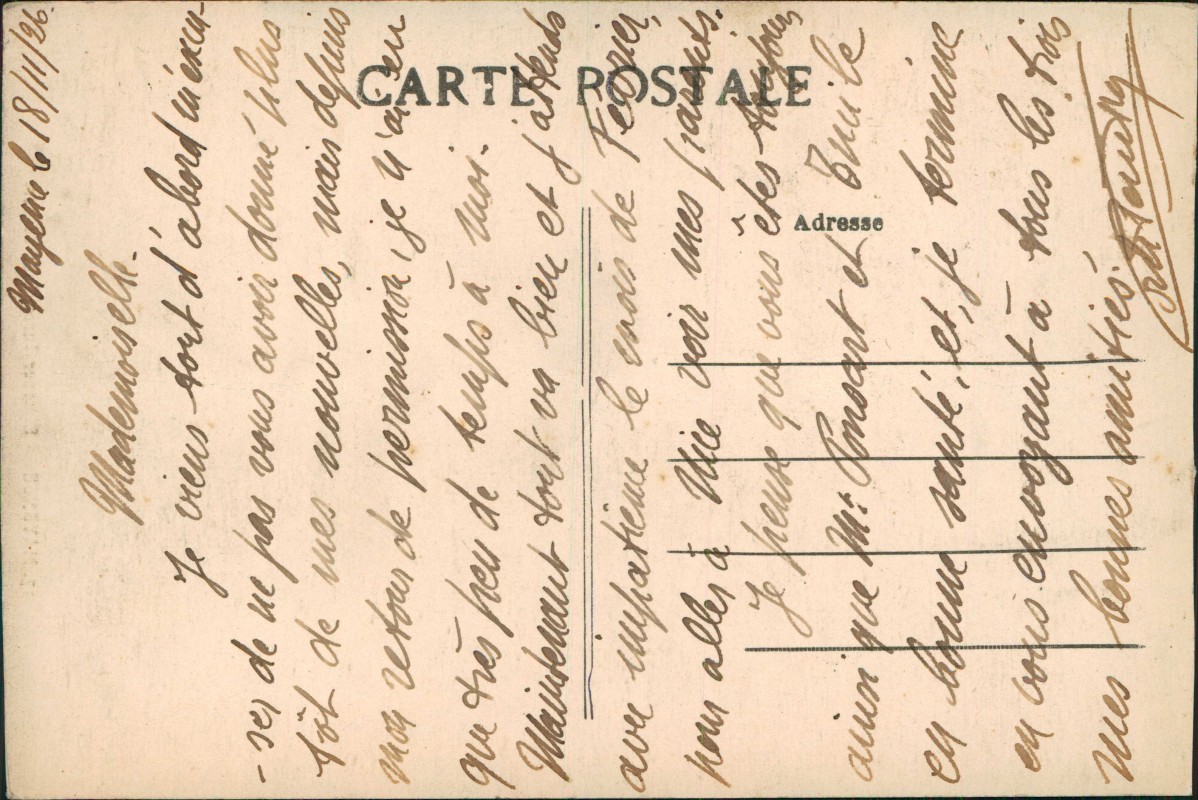 CARTE POSTALE
Adresse
Mayenne le 18/11/26.
Mademoiselle.
Je viens tout d'abord m'excu-
-ser de ne pas vous avoir donné plus
tôt de mes nouvelles, mais depuis
mon retour de permission, je n'ai eu
que très peu de temps à moi.
Maintenant tout va bien et j'attends
avec impatience le mois de Fevrier,
pour aller à Nice voir mes parents.
Je pense que vous êtes toujours
ainsi que Mr Ponsart et Emile
en bonne santé, et, je termine
en vous envoyant à tous les trois
mes bonnes amitiés.